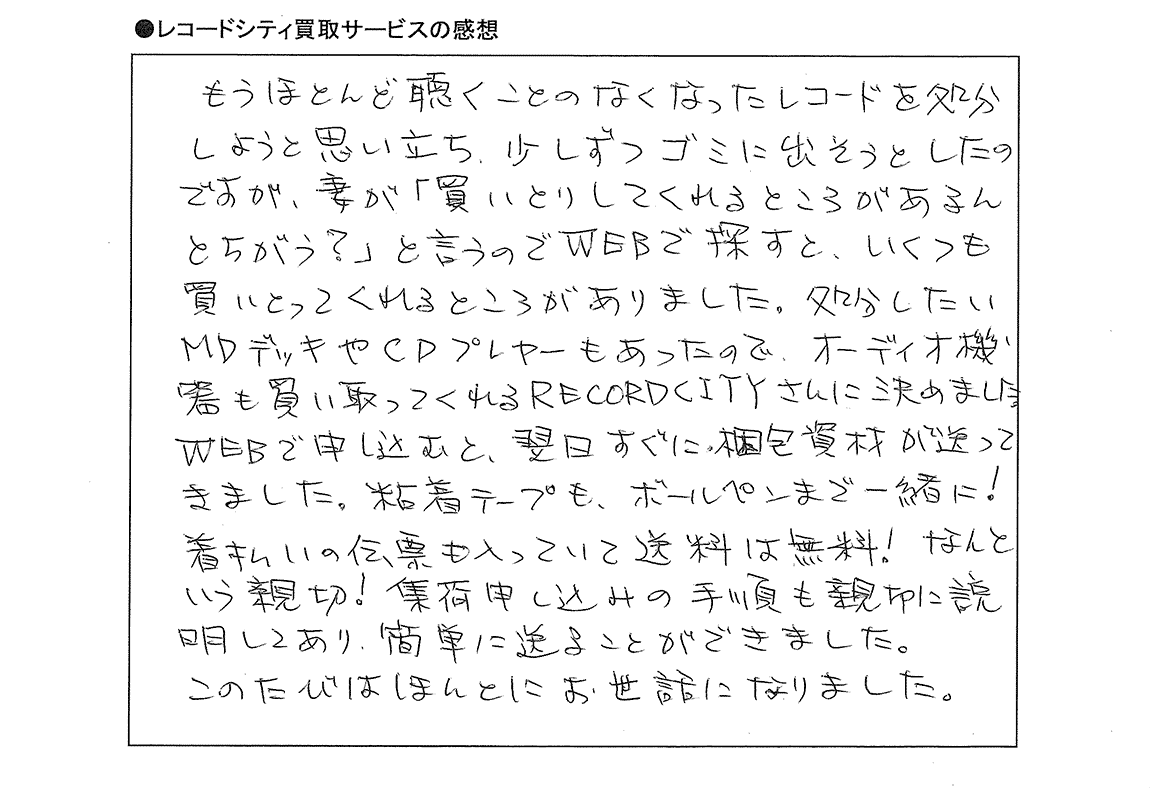 ●レコードシティ買取サービスの感想
もうほとんど聴くことのなくなったレコードを処分
しようと思い立ち、少しずつゴミに出そうとしたの
ですが、妻が「買いとりしてくれるところがあるん
とちがう?」と言うのでWEBで探すと、いくつも
買いとってくれるところがありました。処分したい
MDデッキやCDプレヤーもあったので、オーディオ機
器も買い取ってくれるRECORDCITYさんに決めました
WEBで申し込むと、翌日すぐに梱包資材が送って
きました。粘着テープも、ボールペンまで一緒に!
着払いの伝票も入っていて送料は無料!なんと
いう親切!集荷申し込みの手順も親切に説
明してあり、簡単に送ることができました。
このたびはほんとにお世話になりました。